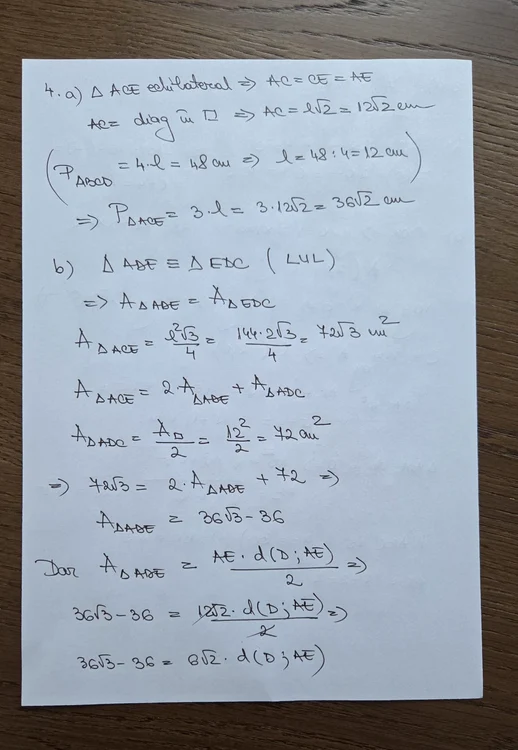 4. a) △ ACE echilateral ⇒ AC = CE = AE
AC = diag în □ ⇒ AC = l√2 = 12√2 cm
(P_ABCD = 4·l = 48 cm ⇒ l = 48 : 4 = 12 cm)
⇒ P_△ACE = 3·l = 3·12√2 = 36√2 cm
b) △ ADE ≡ △ EDC (LUL)
⇒ A_△ADE = A_△EDC
A_△ACE = l²√3/4 = 144·2√3/4 = 72√3 cm²
A_△ACE = 2·A_△ADE + A_△ADC
A_△ADC = A_□/2 = 12²/2 = 72 cm²
⇒ 72√3 = 2·A_△ADE + 72 ⇒
A_△ADE = 36√3 − 36
Dar A_△ADE = AE · d(D; AE)/2 ⇒
36√3 − 36 = 12√2 · d(D; AE)/2 ⇒
36√3 − 36 = 6√2 · d(D; AE)